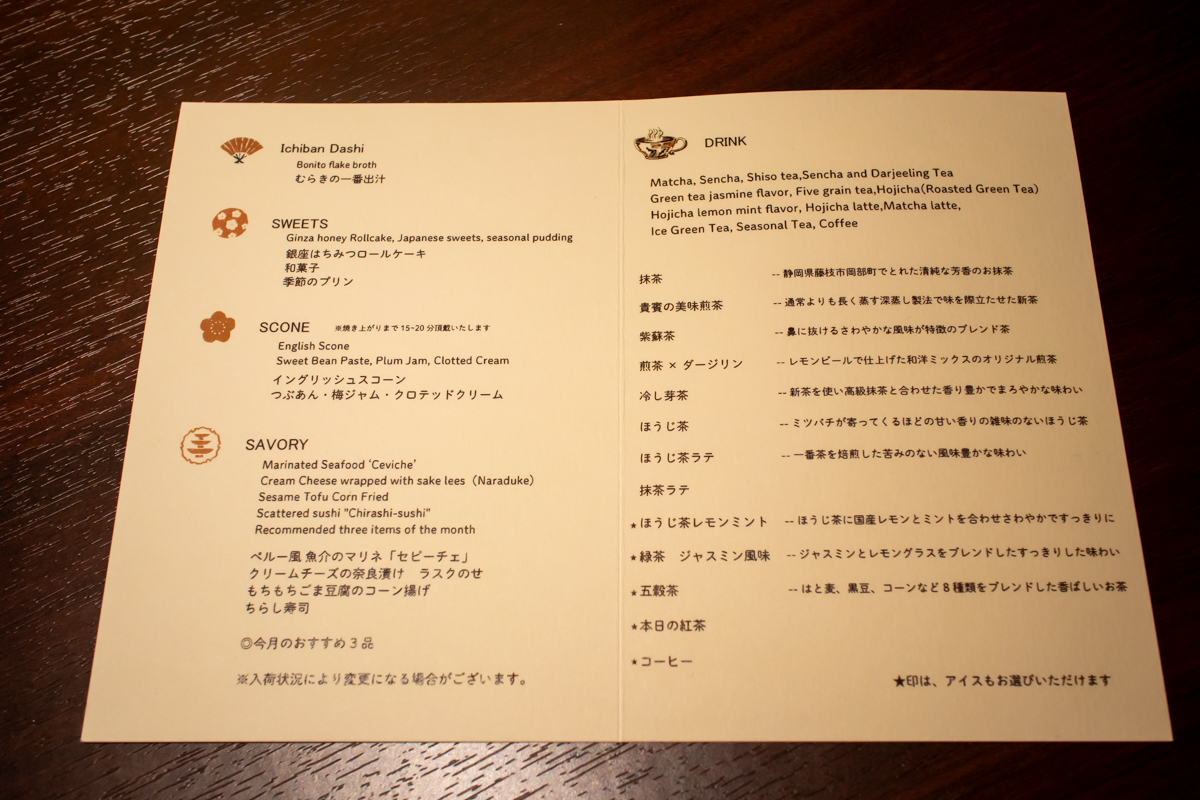 Ichiban Dashi
Bonito flake broth
むらきの一番出汁
SWEETS
Ginza honey Rollcake, Japanese sweets, seasonal pudding
銀座はちみつロールケーキ
和菓子
季節のプリン
SCONE ※焼き上がりまで 15-20 分頂戴いたします
English Scone
Sweet Bean Paste, Plum Jam, Clotted Cream
イングリッシュスコーン
つぶあん・梅ジャム・クロテッドクリーム
SAVORY
Marinated Seafood ‘Ceviche’
Cream Cheese wrapped with sake lees（Naraduke）
Sesame Tofu Corn Fried
Scattered sushi "Chirashi-sushi"
Recommended three items of the month
ペルー風 魚介のマリネ「セビーチェ」
クリームチーズの奈良漬け　ラスクのせ
もちもちごま豆腐のコーン揚げ
ちらし寿司
◎今月のおすすめ３品
※入荷状況により変更になる場合がございます。
DRINK
Matcha, Sencha, Shiso tea,Sencha and Darjeeling Tea
Green tea jasmine flavor, Five grain tea,Hojicha(Roasted Green Tea)
Hojicha lemon mint flavor, Hojicha latte,Matcha latte,
Ice Green Tea, Seasonal Tea, Coffee
抹茶 -- 静岡県藤枝市岡部町でとれた清純な芳香のお抹茶
貴賓の美味煎茶 -- 通常よりも長く蒸す深蒸し製法で味を際立たせた新茶
紫蘇茶 -- 鼻に抜けるさわやかな風味が特徴のブレンド茶
煎茶 × ダージリン -- レモンピールで仕上げた和洋ミックスのオリジナル煎茶
冷し芽茶 -- 新茶を使い高級抹茶と合わせた香り豊かでまろやかな味わい
ほうじ茶 -- ミツバチが寄ってくるほどの甘い香りの雑味のないほうじ茶
ほうじ茶ラテ -- 一番茶を焙煎した苦みのない風味豊かな味わい
抹茶ラテ
★ほうじ茶レモンミント -- ほうじ茶に国産レモンとミントを合わせさわやかですっきりに
★緑茶　ジャスミン風味 -- ジャスミンとレモングラスをブレンドしたすっきりした味わい
★五穀茶 -- はと麦、黒豆、コーンなど８種類をブレンドした香ばしいお茶
★本日の紅茶
★コーヒー
★印は、アイスもお選びいただけます